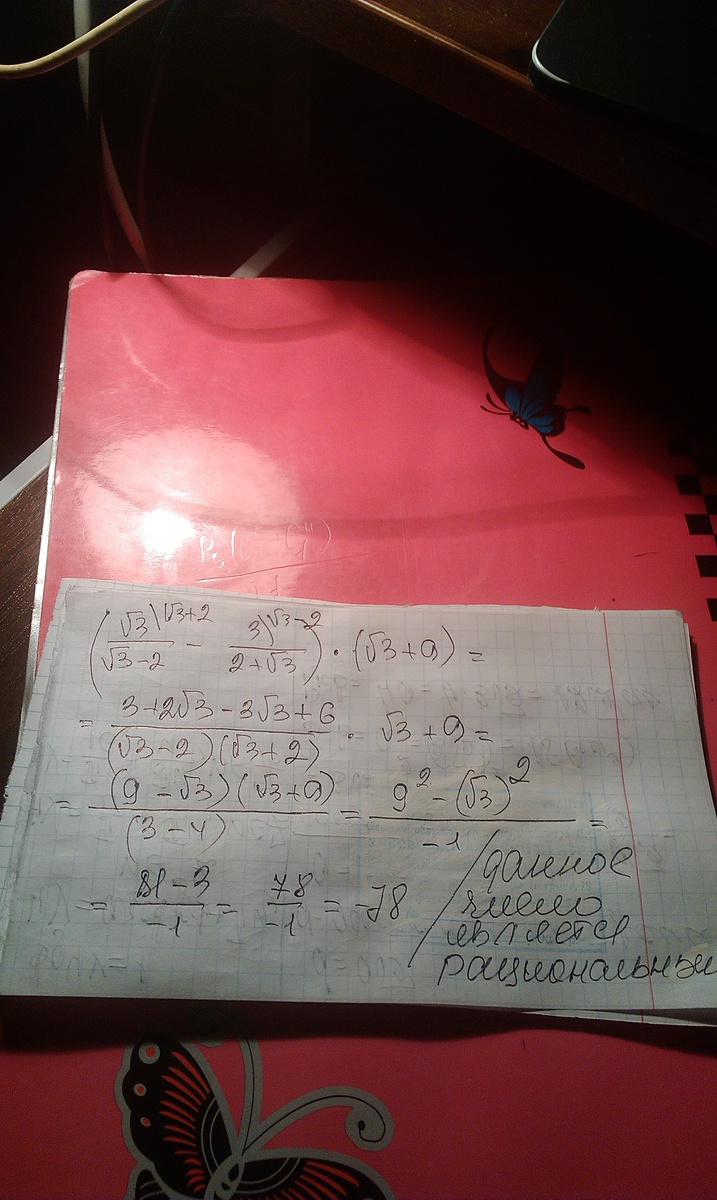 (√3\√3+2 / √3-2 - 3\√3-2 / 2+√3) · (√3+9) =
= 3+2√3-3√3+6 / (√3-2)(√3+2) · √3+9 =
= (9-√3)(√3+9) / (3-4) = 9² - (√3)² / -1 =
= 81-3 / -1 = 78 / -1 = -78 / данное
число
является
рациональным